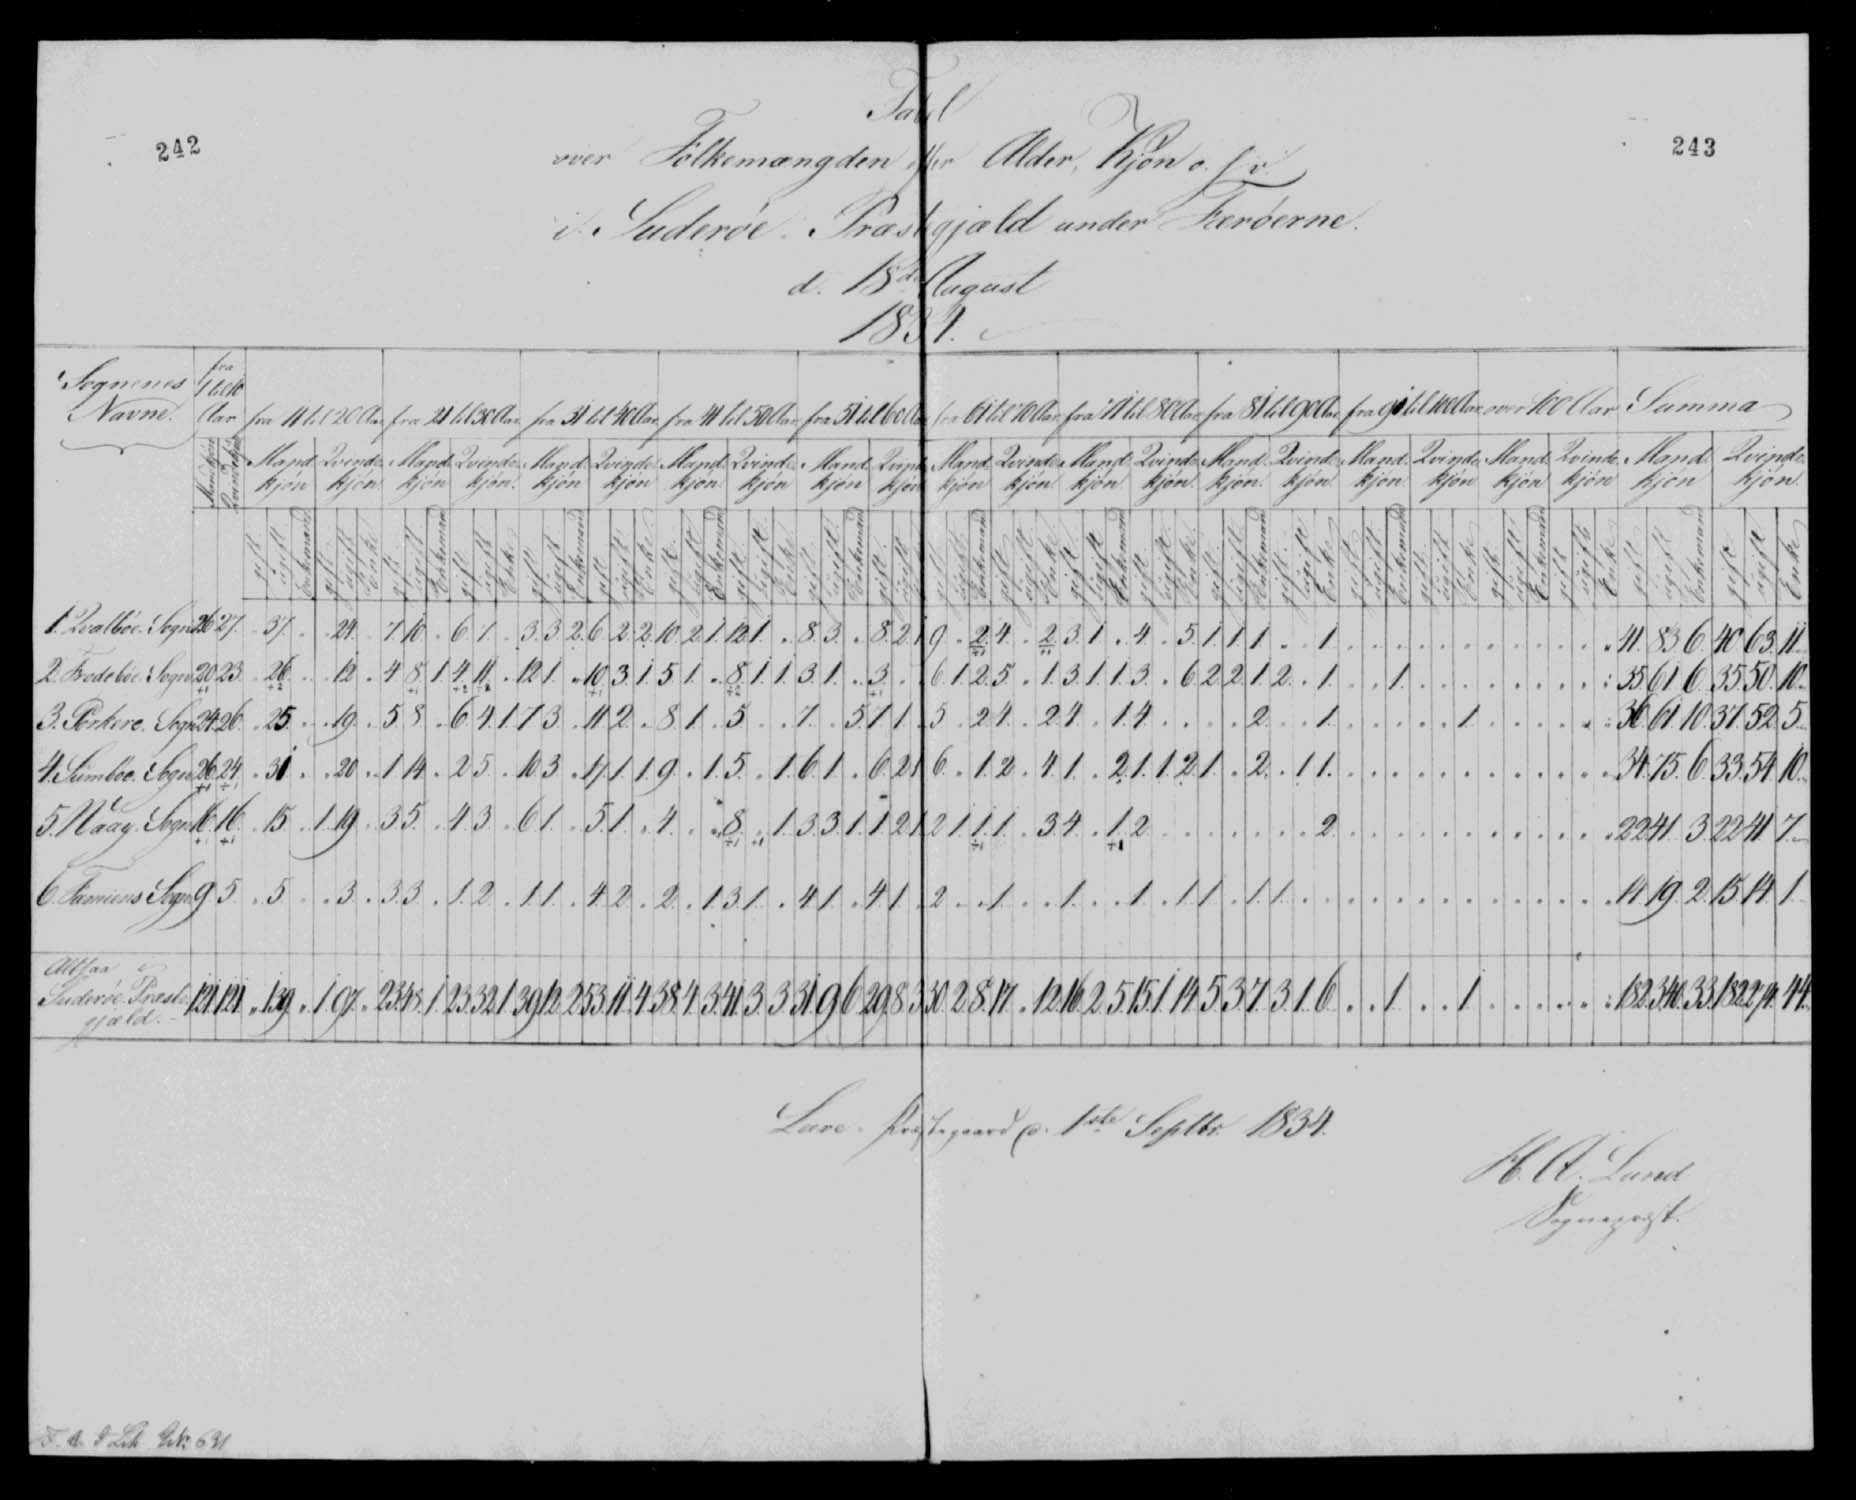 242
243
Tabel
over Folkemængden efter Alder, Kjön o. s. v.
i Suderöe Præstegjæld under Færöerne.
d. 18de August
1834.
Sognenes Navne.
fra 1 til 10 Aar
fra 11 til 20 Aar
fra 21 til 30 Aar
fra 31 til 40 Aar
fra 41 til 50 Aar
fra 51 til 60 Aar
fra 61 til 70 Aar
fra 71 til 80 Aar
fra 81 til 90 Aar
fra 91 til 100 Aar
over 100 Aar
Summa
Mandkjön Qvindekjön
Mand kjön Qvinde kjön Mand kjön Qvinde kjön Mand kjön Qvinde kjön Mand kjön Qvinde kjön Mand kjön Qvinde kjön Mand kjön Qvinde kjön Mand kjön Qvinde kjön Mand kjön Qvinde kjön Mand kjön Qvinde kjön Mand kjön Qvinde kjön Mand kjön Qvinde kjön
gift ugift Enkemand gift ugift Enke
1. Qvalböe Sogn 26 27 . 37 . . 24 . 7 10 . 6 7 . 3 3 2 6 2 2 10 2 1 12 1 . 8 3 . 8 2 1 9 . 2 4 . 2 3 1 . 4 . 5 1 1 1 . . 1 41 83 6 40 63 11
2. Frodeböe Sogn 20 23 . 26 . . 12 . 4 8 1 4 11 . 12 1 . 10 3 1 5 1 . 8 1 1 3 1 . 3 . . 6 1 2 5 . 1 3 1 1 3 . 6 2 2 1 2 . 1 . . 1 35 61 6 35 50 10
3. Porkere Sogn 24 26 . 25 . . 19 . 5 8 . 6 4 1 7 3 . 11 2 . 8 1 . 5 . . 7 . 5 7 1 . 5 . 2 4 . 2 4 . 1 4 . . . . 2 . . 1 . . . . 1 36 61 10 37 52 5
4. Sumböe Sogn 26 24 . 31 . . 20 . 1 14 . 2 5 . 10 3 . 1 1 9 . 1 5 . 1 6 1 . 6 2 1 6 . 1 2 . 4 1 . 2 1 1 2 1 . 2 . 1 1 34 75 6 33 54 10
5. Vaag Sogn 16 16 . 15 . 1 19 . 3 5 . 4 3 . 6 1 . 5 1 . 4 . . 8 . 1 3 3 1 1 2 1 2 1 1 1 . 3 4 . 1 2 . . . . . . . . 2 22 41 3 22 41 7
6. Famiens Sogn 9 5 . 5 . . 3 . 3 3 . 1 2 . 1 1 . 4 2 . 2 . 1 3 1 . 4 1 . 4 1 . 2 . . 1 . . 1 . . 1 . 1 1 . 1 1 14 19 2 15 14 1
Altsaa Suderöe Præstegjæld. 121 121 . 139 . 1 97 . 23 48 1 23 32 1 39 12 2 53 11 4 38 4 3 41 3 3 31 9 6 29 8 3 30 2 8 17 . 12 16 2 5 15 1 14 5 3 7 3 1 6 . . 1 . . 1 182 340 33 182 274 44
Præstegaard d. 1ste Septbr. 1834.
H. A. Lund
Sognepræst.